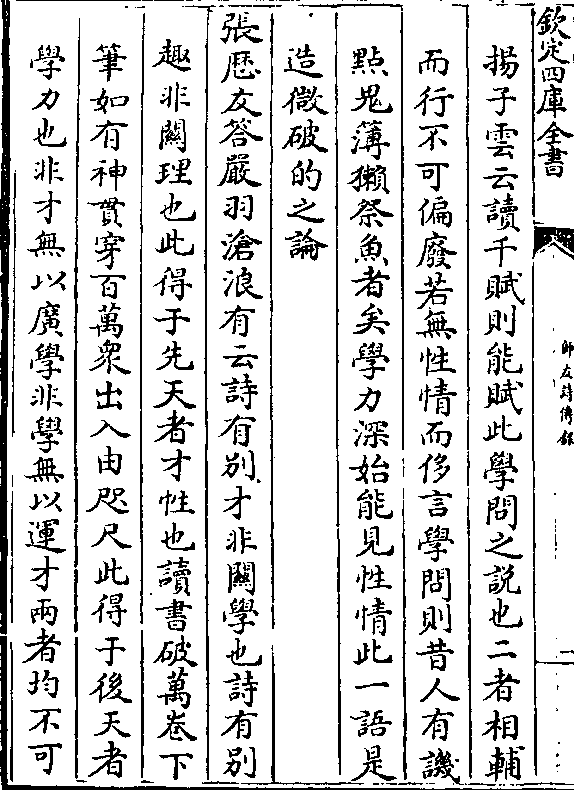 欽定四庫全書
師友詩傳録
二
揚子雲云讀千賦則能賦此學問之說也二者相輔
而行不可偏廢若無性情而侈言學問則昔人有譏
㸃鬼薄獺祭魚者矣學力深始能見性情此一語是
造微破的之論
張歷友答嚴羽滄浪有云詩有别才非闗學也詩有别
趣非闗理也此得于先天者才性也讀書破萬卷下
筆如有神貫穿百萬衆出入由咫尺此得于後天者
學力也非才無以廣學非學無以運才兩者均不可